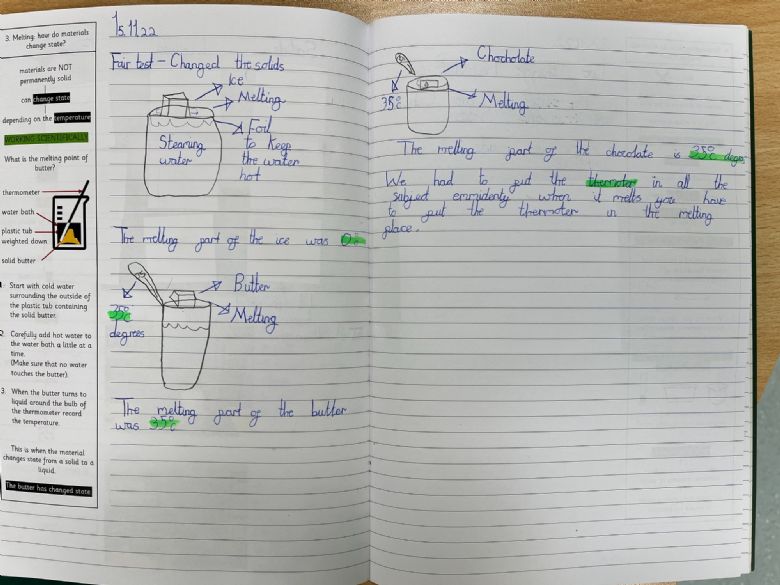 3. Melting: how do materials
change state?
materials are NOT
permanently solid
can change state
depending on the temperature
WORKING SCIENTIFICALLY
What is the melting point of
butter?
thermometer
water bath
plastic tub
weighted down
solid butter
Start with cold water
surrounding the outside of
the plastic tub containing
the solid butter.
Carefully add hot water to
the water bath a little at a
time.
(Make sure that no water
touches the butter).
3. When the butter turns to
liquid around the bulb of
the thermometer record
the temperature.
This is when the material
changes state from a solid to a
liquid.
The butter has changed state
15.11.22
Fair test - Changed the solids
Ice
Melting
Foil
to keep
the water
hot
Steaming
water
The melting part of the ice was 0°c
Butter
Melting
35°c
degrees
The melting part of the butter
was 35°c
Chocholate
35°c
Melting
The melting part of the chocolate is 35°c
We had to put the thermoter in all the
when it melts you have
to put the thermoter in the melting
place.